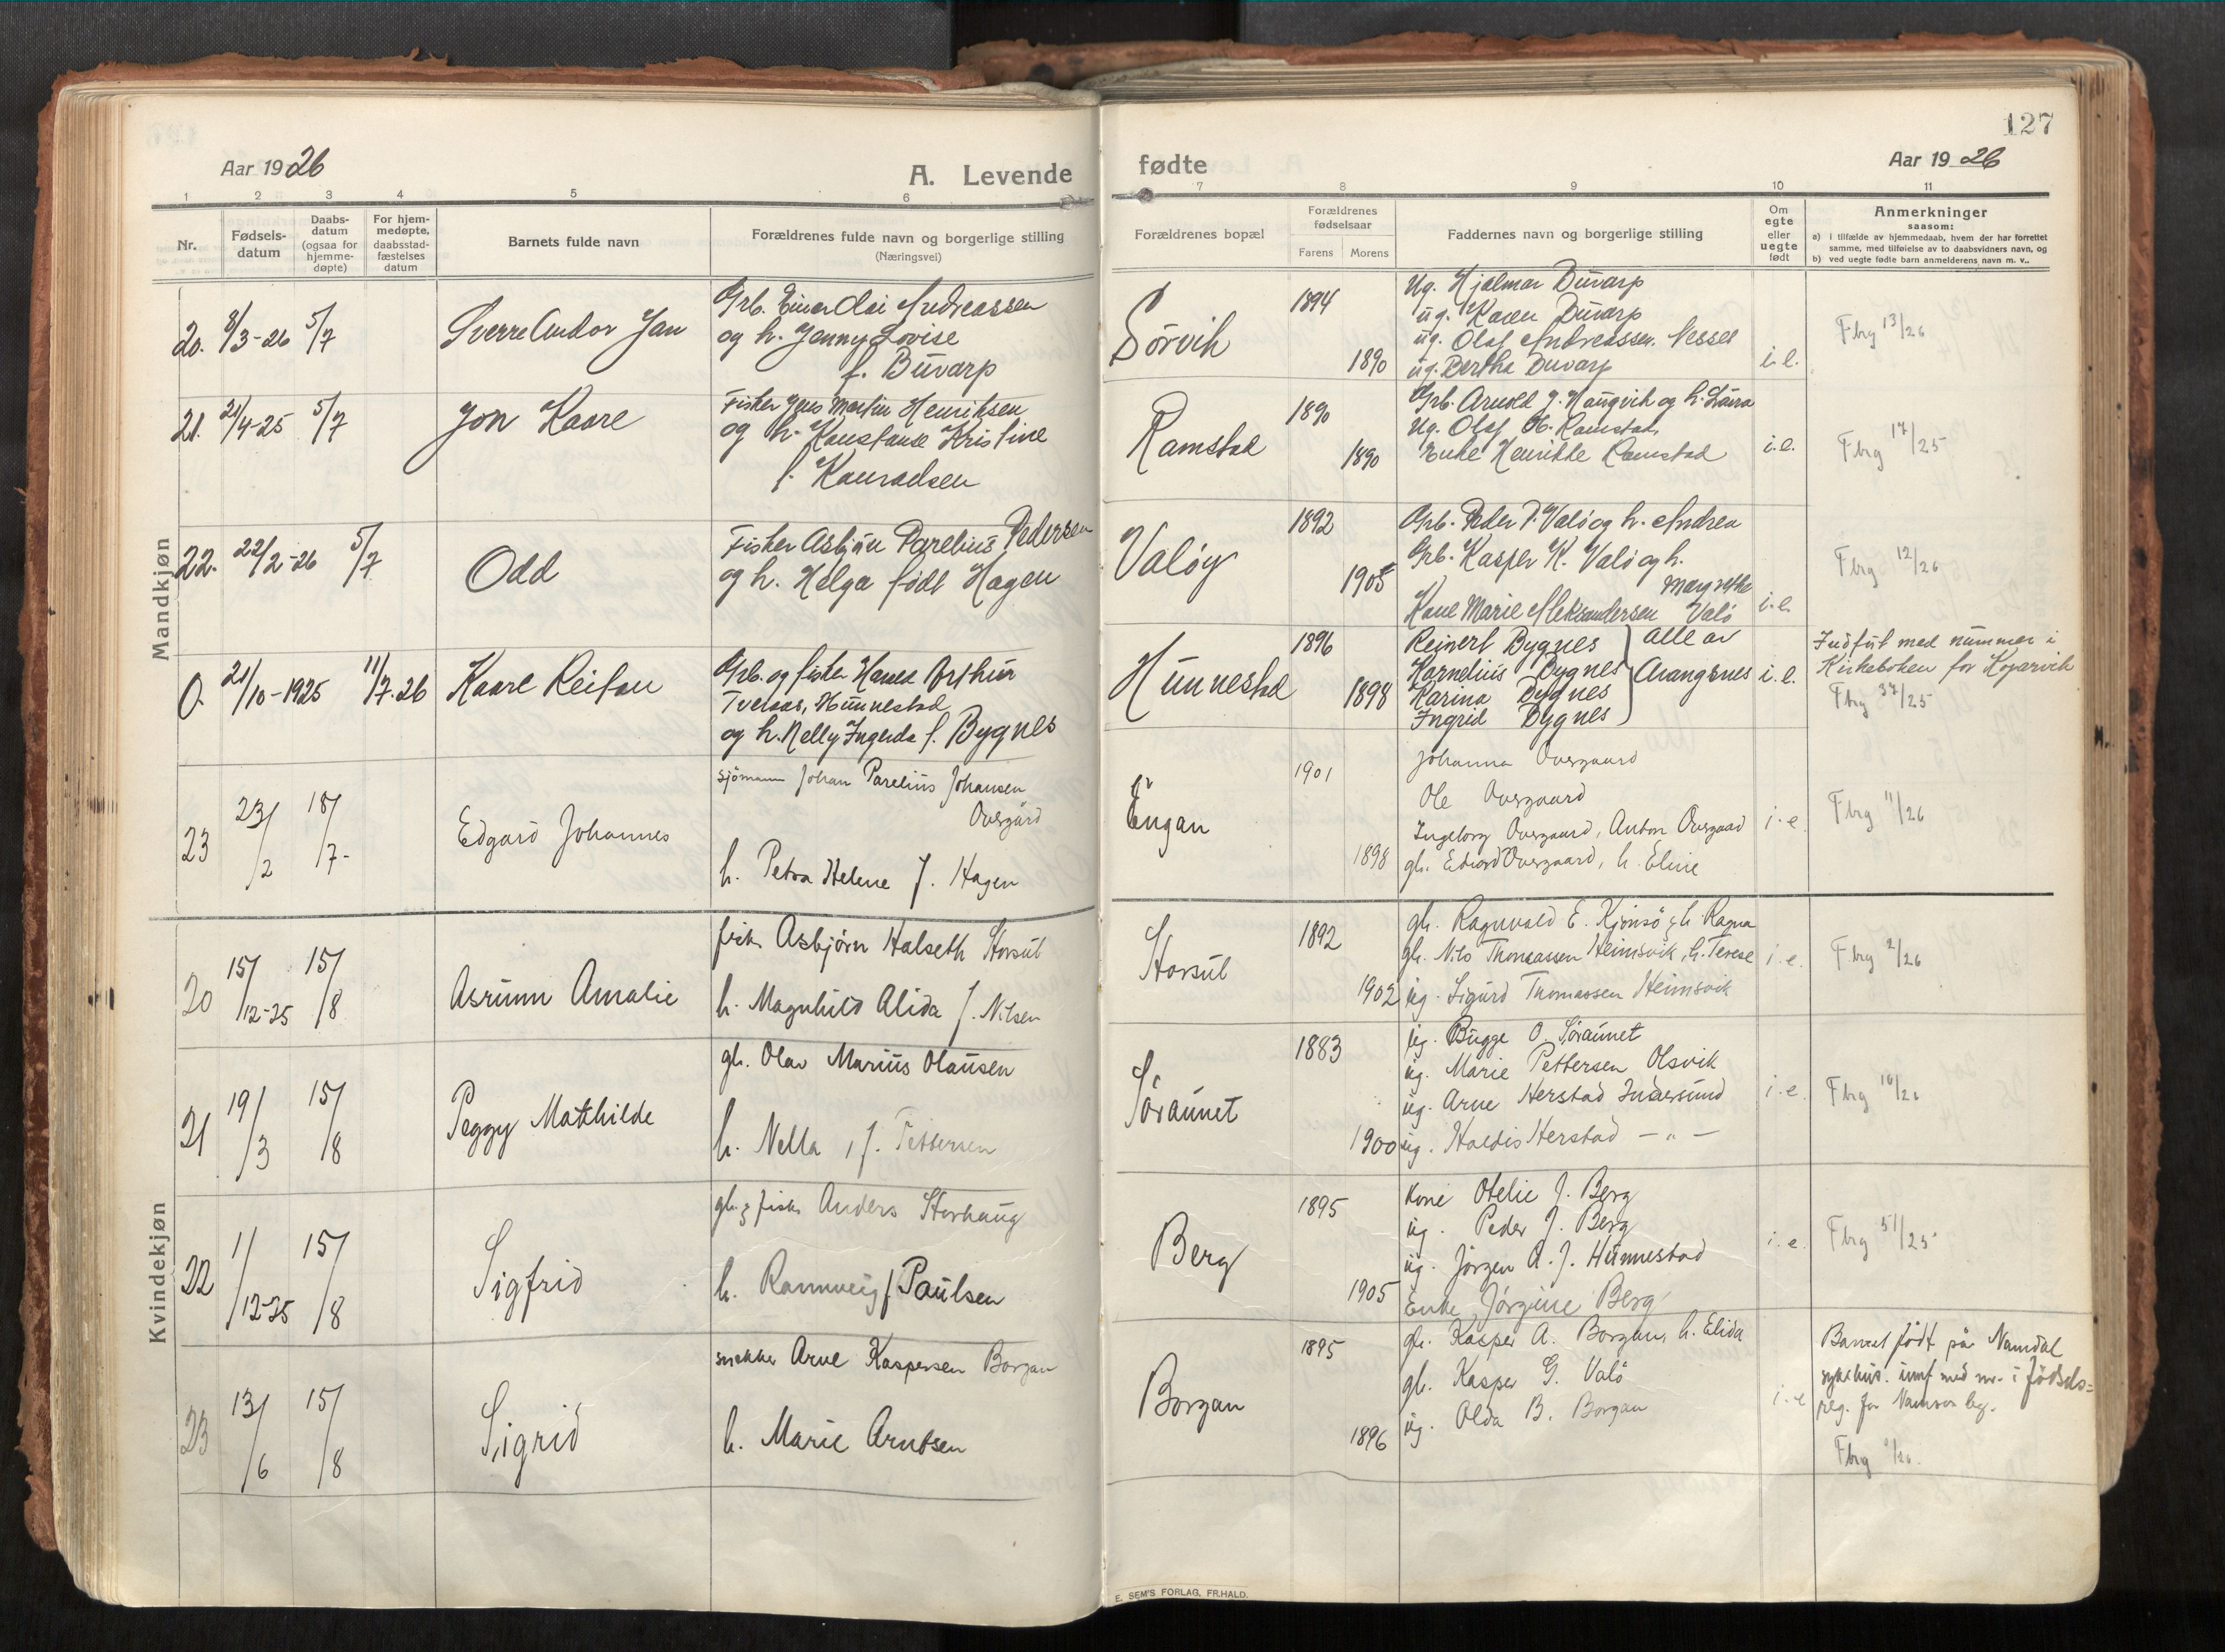 127
Aar 1926
A. Levende
fødte
Aar 1926
1 2 3 4 5 6 7 8 9 10 11
Nr.
Fødsels-
datum
Daabs-
datum
(ogsaa for
hjemme-
døpte)
For hjem-
medøpte,
daabsstad-
fæstelses
datum
Barnets fulde navn
Forældrenes fulde navn og borgerlige stilling
(Næringsvei)
Forældrenes bopæl
Forældrenes
fødselsaar
Farens Morens
Faddernes navn og borgerlige stilling
Om
egte
eller
uegte
født
Anmerkninger
saasom:
a) i tilfælde av hjemmedaab, hvem der har forrettet
samme, med tilføielse av to daabsvidners navn, og
b) ved uegte fødte barn anmelderens navn m. v..
Mandkjøn
20. 8/3-26 5/7
Sverre Andor Jan
Grb. Einar Andreassen
og h. Jenny Lovise
f. Duvarp
Sørvik
1894
1890
Ug. Hjalmar Duvarp
ug. Karen Duvarp
ug. Olaf Andreassen. Nessel
ug. Bertha Duvarp
i.e.
Fbrg 13/26
21. 21/4-25 5/7
Jon Kaare
Fisker Jens Martin Henriksen
og h. Konstanse Kristine
f. Konradsen
Ramstad
1890
1890
Grb. Arnold J. Haugvik og h. Laura
Ug. Olaf H. Ramstad,
Enke Henrikke Ramstad
i.e.
Fbrg 17/25
22. 22/2-26 5/7
Odd
Fisker Asbjørn Parelius Pedersen
og h. Helga født Hagen
Valøy
1892
1905
Grb. Peder P. Valø og h. Andrea
Grb. Kasper K. Valø og h.
Margrethe
Kone Marie Aleksandersen Valø
i.e.
Fbrg 12/26
0. 21/10-1925 11/7.26
Kaare Reifau
Grb. og fisker Hans Arthur
Tveraas, Hunnestad
og h. Nelly Ingerda f. Bygnes
Hunnestad
1896
1898
Reinert Bygnes } alle av
Kornelius Bygnes } Arangsnes
Karina Bygnes
Ingrid Bygnes
i.e.
Indført med nummer i
Kirkeboken for Kopervik
Fbrg 37/25
23 23/2 18/7-
Edgard Johannes
sjømann Johan Parelius Johansen
Overgård
h. Petra Helene f. Hagen
Engan
1901
1898
Johanna Overgaard
Ole Overgaard
Ingeborg Overgaard, Anton Overgaad
gb. Edvard Overgaard, h. Eline
i.e.
Fbrg 11/26
Kvindekjøn
20 15/12-25 15/8
Asrunn Amalie
fisk. Asbjørn Halseth Storsul
h. Magnhild Alida f. Nilsen
Storsul
1892
1902
gb. Ragnvald E. Kjønsø & h. Ragna
gb. Nils Thomassen Heimsvik, h. Terese
ug. Sigurd Thomassen Heimsvik
i.e.
Fbrg 2/26
21 19/3 15/8
Peggy Mathilde
gb. Olav Marius Olausen
h. Nella, f. Pettersen
Søraunet
1883
1900
ug. Bugge O. Søraunet
ug. Marie Pettersen Olsvik
ug. Arne Herstad Indersund
ug. Haldis Herstad — " —
i.e.
Fbrg 10/26
22 1/12-25 15/8
Sigfrid
gb. & fisk. Anders Storhaug
h. Rannveig f. Paulsen
Berg
1895
1905
kone Otelie J. Berg
ug. Peder J. Berg
ug. Jørgen A. J. Hunnestad
Enke Jørgine Berg
i.e.
Fbrg 51/25
23 13/6 15/8
Sigrid
snekker Arne Kaspersen Borgan
h. Marie Arntsen
Borgan
1895
1896
gb. Kasper A. Borgan, h. Elida
gb. Kasper G. Valø
ug. Olda B. Borgan
i.e
Barnet født på Namdal
sykehus. innf med nr. i fødsels=
reg. for Namsos
Fbrg /26.
E. SEM'S FORLAG, FR.HALD.